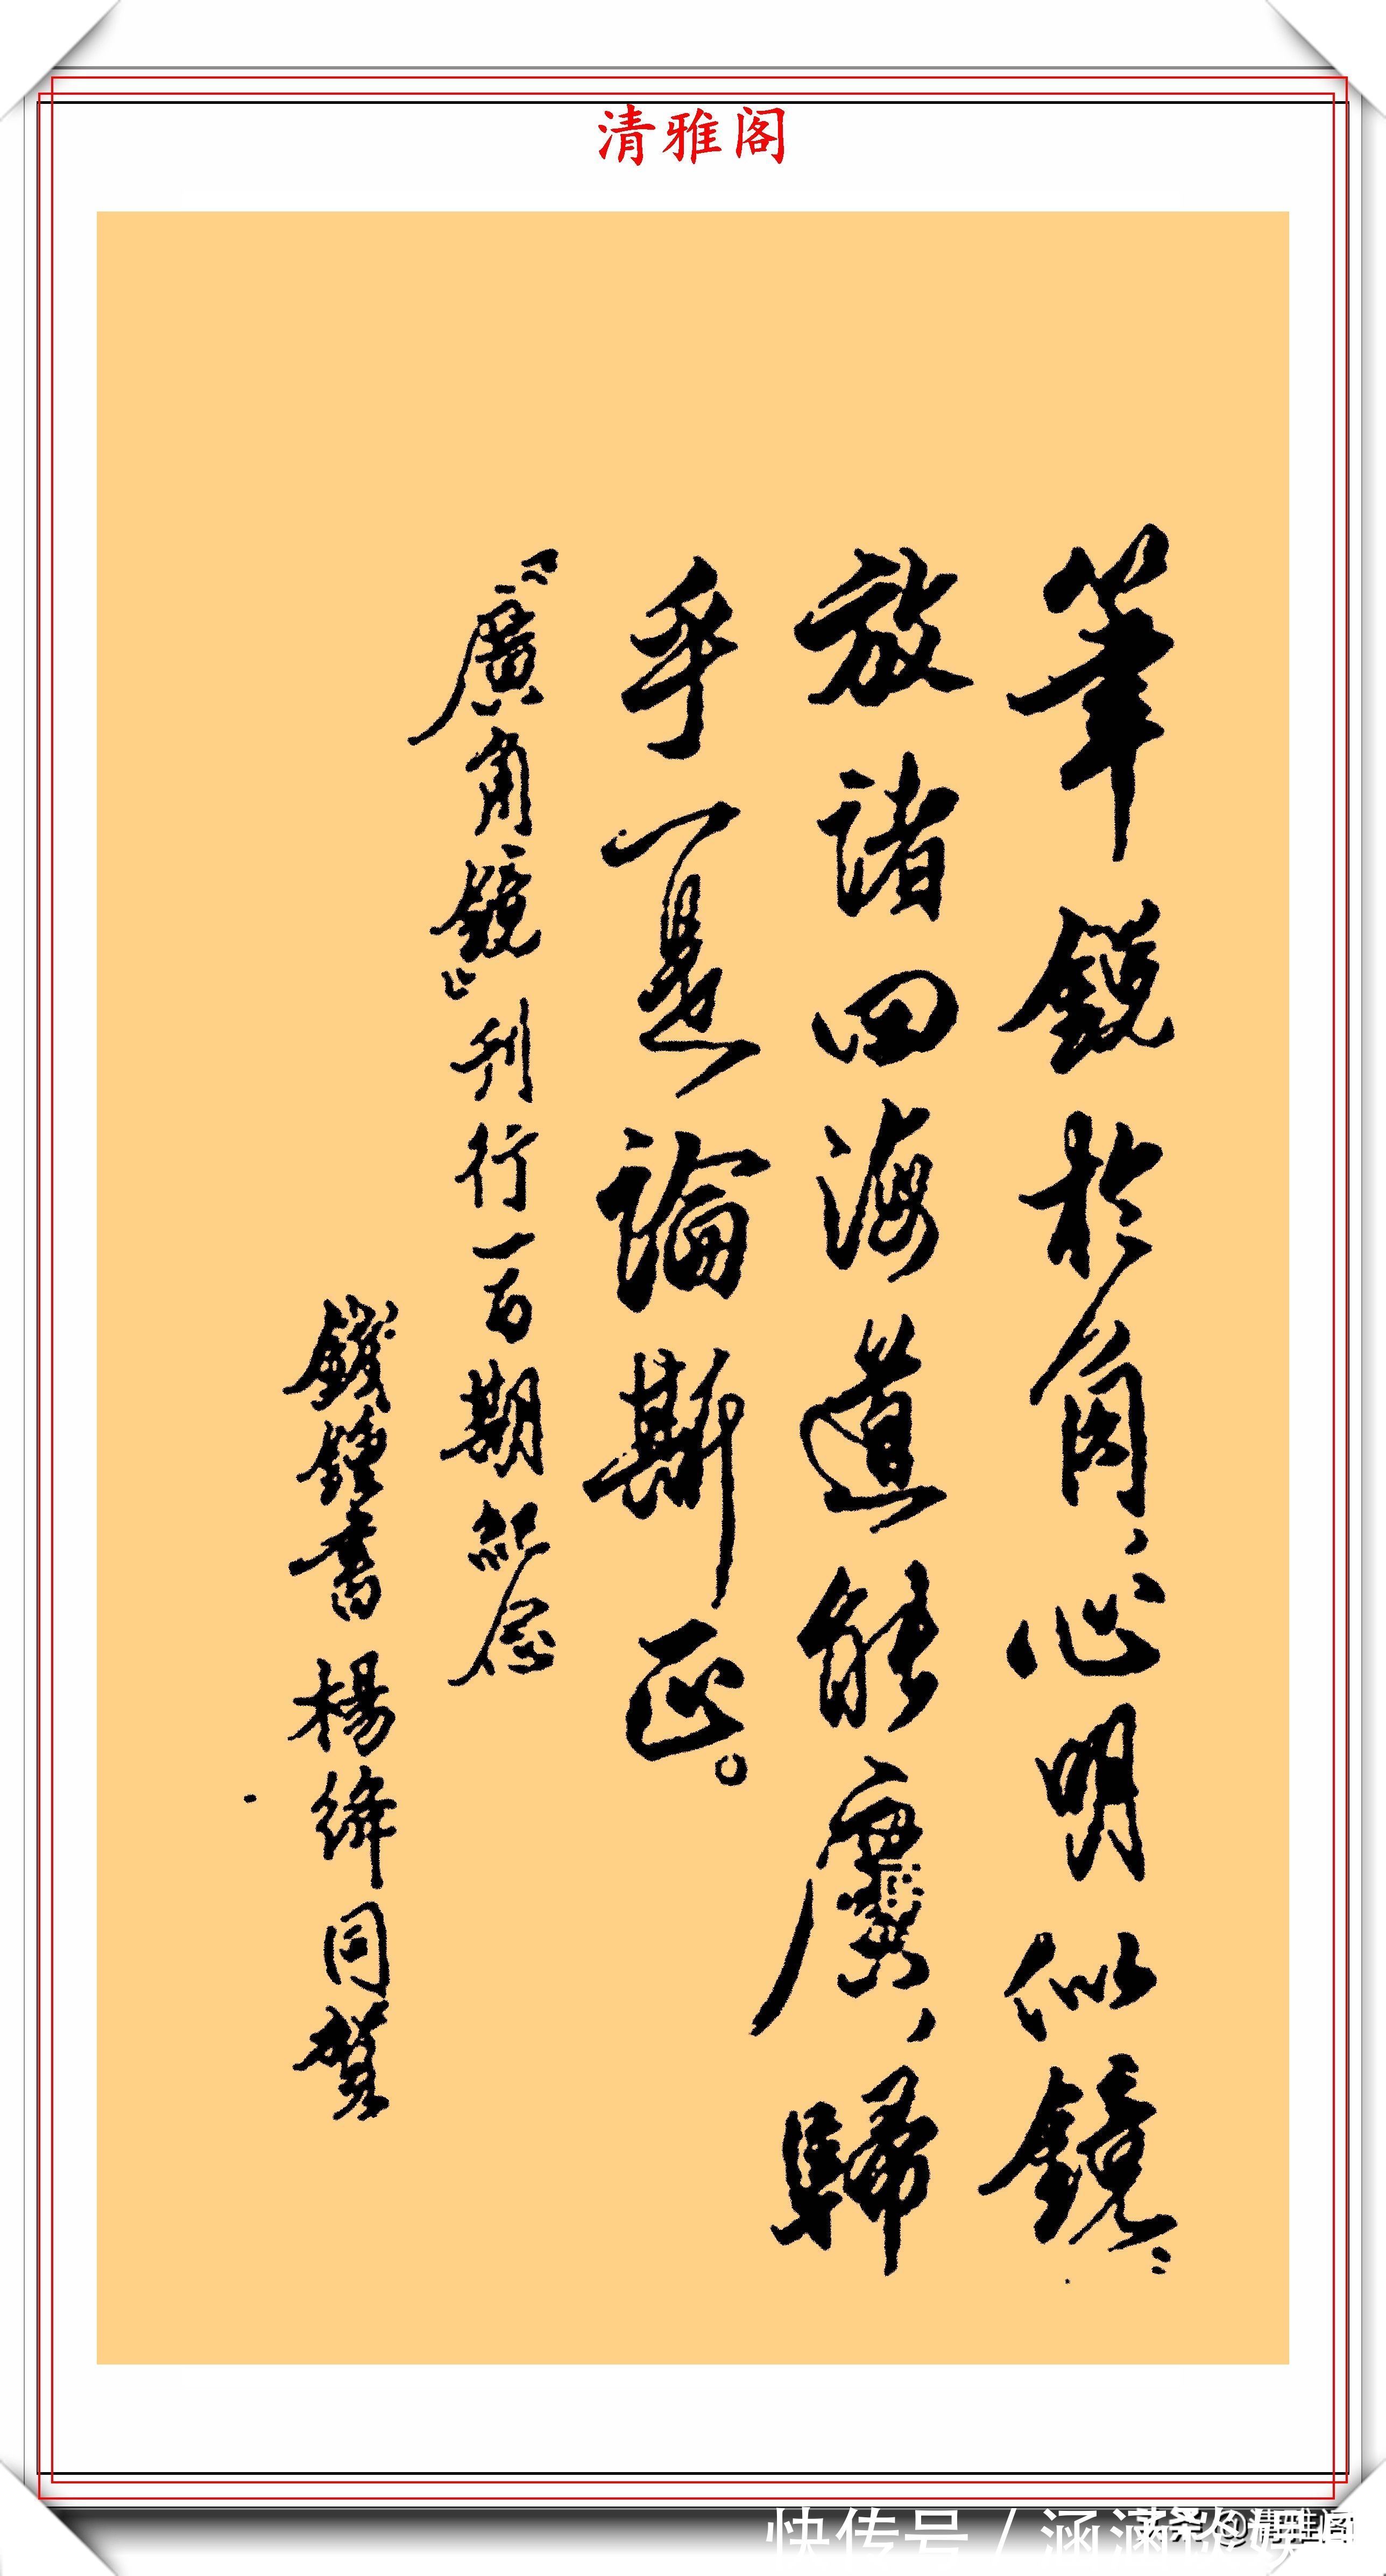 清雅阁
筆銳於角，心明似鏡；
放諸四海，道能廣，歸
乎一是，論斯正。
《廣角鏡》刊行一百期紀念
錢鍾書 楊絳同賀
快传号 / 涵涵
@清雅阁